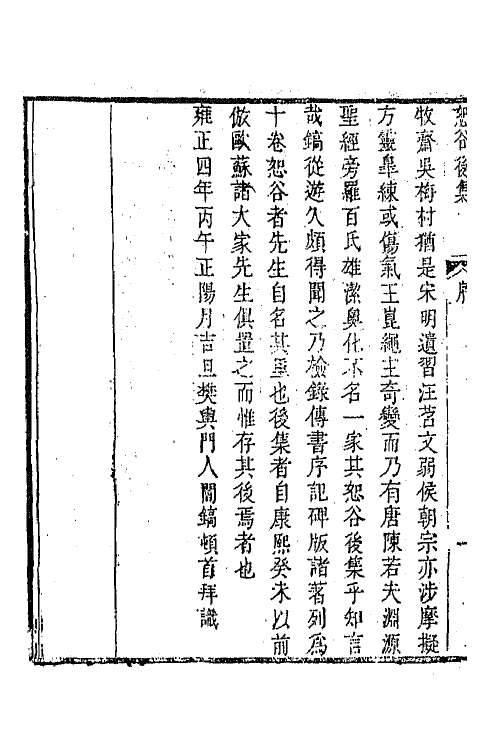 恕谷後集 序 一
牧齋吳梅村猶是宋明遺習汪苕文弱侯朝宗亦涉摩擬
方靈臯練或傷氣王崑繩主奇變而乃有唐陳若夫淵源
聖經旁羅百氏雄潔奧化不名一家其恕谷後集乎知言
哉鎬從遊久頗得聞之乃檢錄傳書序記碑版諸著列爲
十卷恕谷者先生自名其里也後集者自康熙癸未以前
倣歐蘇諸大家先生俱置之而惟存其後焉者也
雍正四年丙午正陽月吉旦樊輿門人閻鎬頓首拜識